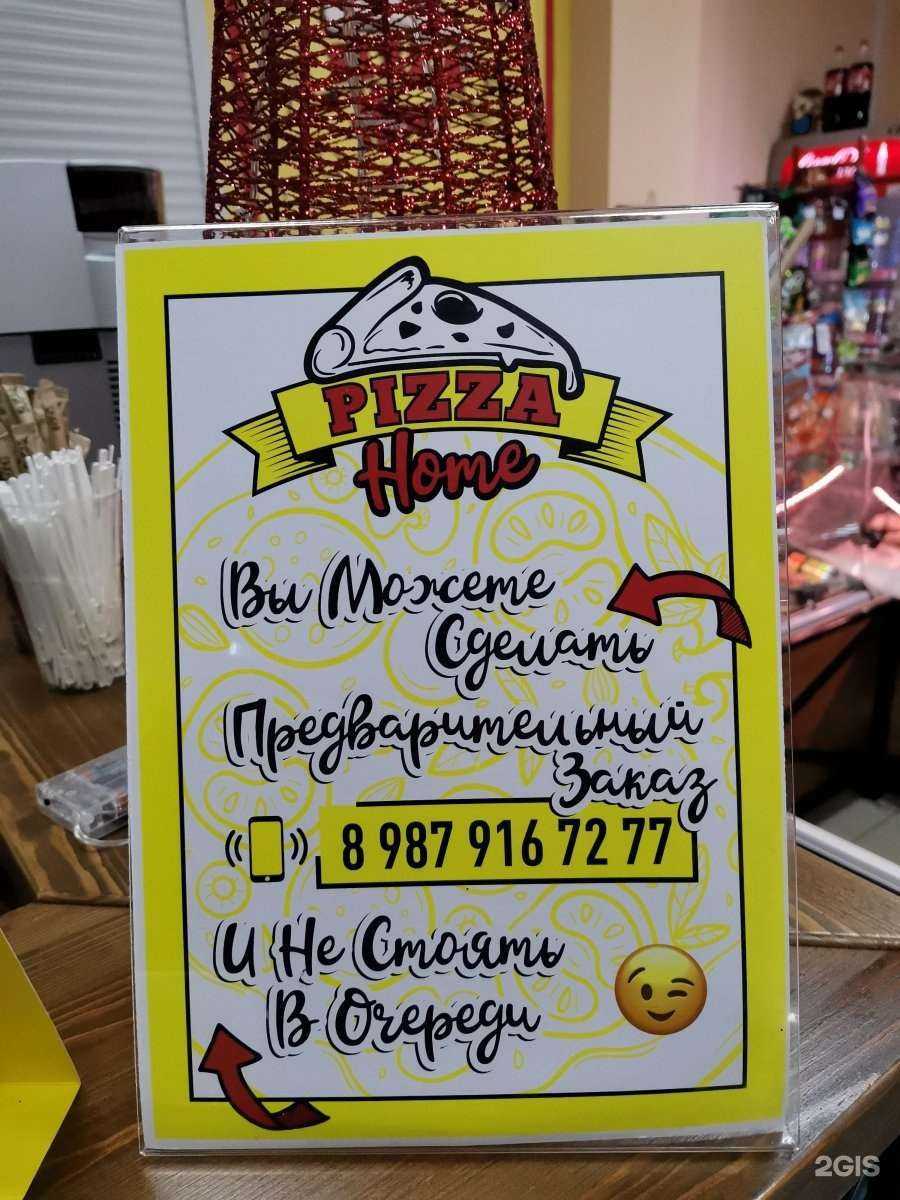 PIZZA
Home
Вы Можете
Сделать
Предварительный
Заказ
8 987 916 72 77
И Не Стоять
В Очереди
2GIS